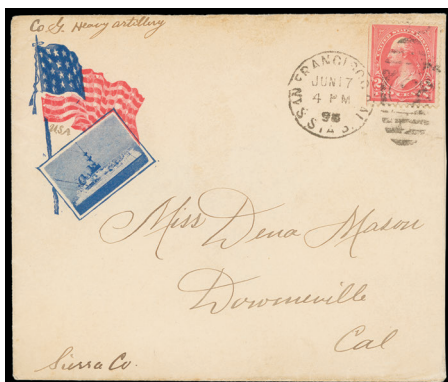 Co G. Heavy artillery
USA
SAN FRANCISCO, CAL.
JUN 17
4 PM
STA
Miss Dena Mason
Downieville
Cal
Sierra Co.